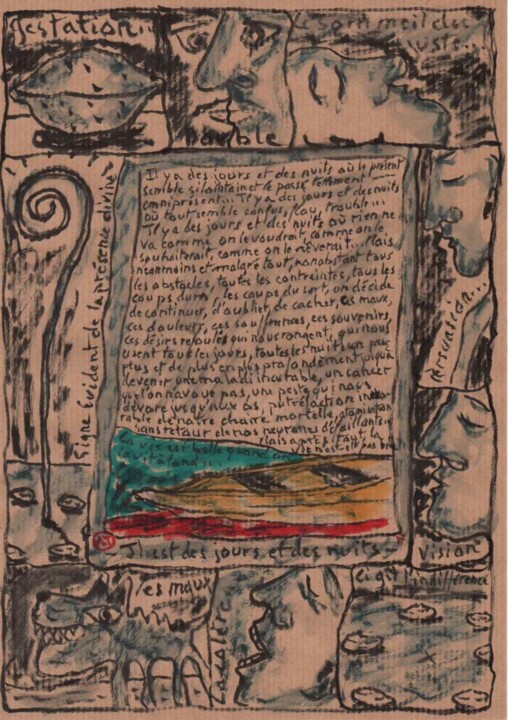 gestation...
Le sommeil du
juste...
trouble
Il y a des jours et des nuits où le présent
semble si lointain et le passé tellement
omniprésent... Il y a des jours et des nuits
où tout semble confus, flou, trouble...
Il y a des jours et des nuits où rien ne
va comme on le voudrait, comme on le
souhaiterait, comme on le rêverait... Mais
néanmoins et malgré tout, nonobstant tous
les obstacles, toutes les contraintes, tous les
coups durs, les coups du sort, on décide
de continuer, d'oublier, de cacher, ces maux,
ces douleurs, ces souffrances, ces souvenirs,
ces désirs refoulés qui nous rongent, qui nous
usent tous les jours, toutes les nuits un peu
plus et de plus en plus profondément jusqu'à
devenir une maladie incurable, un cancer
qu'on n'avoue pas, une peste qui nous
dévore jusqu'aux os, putréfaction
de notre chaire mortelle,
sans retour de nos neurones défaillants...
Mais après tout, la
vie n'est-elle pas
La vie est belle quand on
Il est des jours et des nuits...
Signe évident de la présence divine
Persuasion...
Vision
les maux
La colère
Ci gît l'indifférence